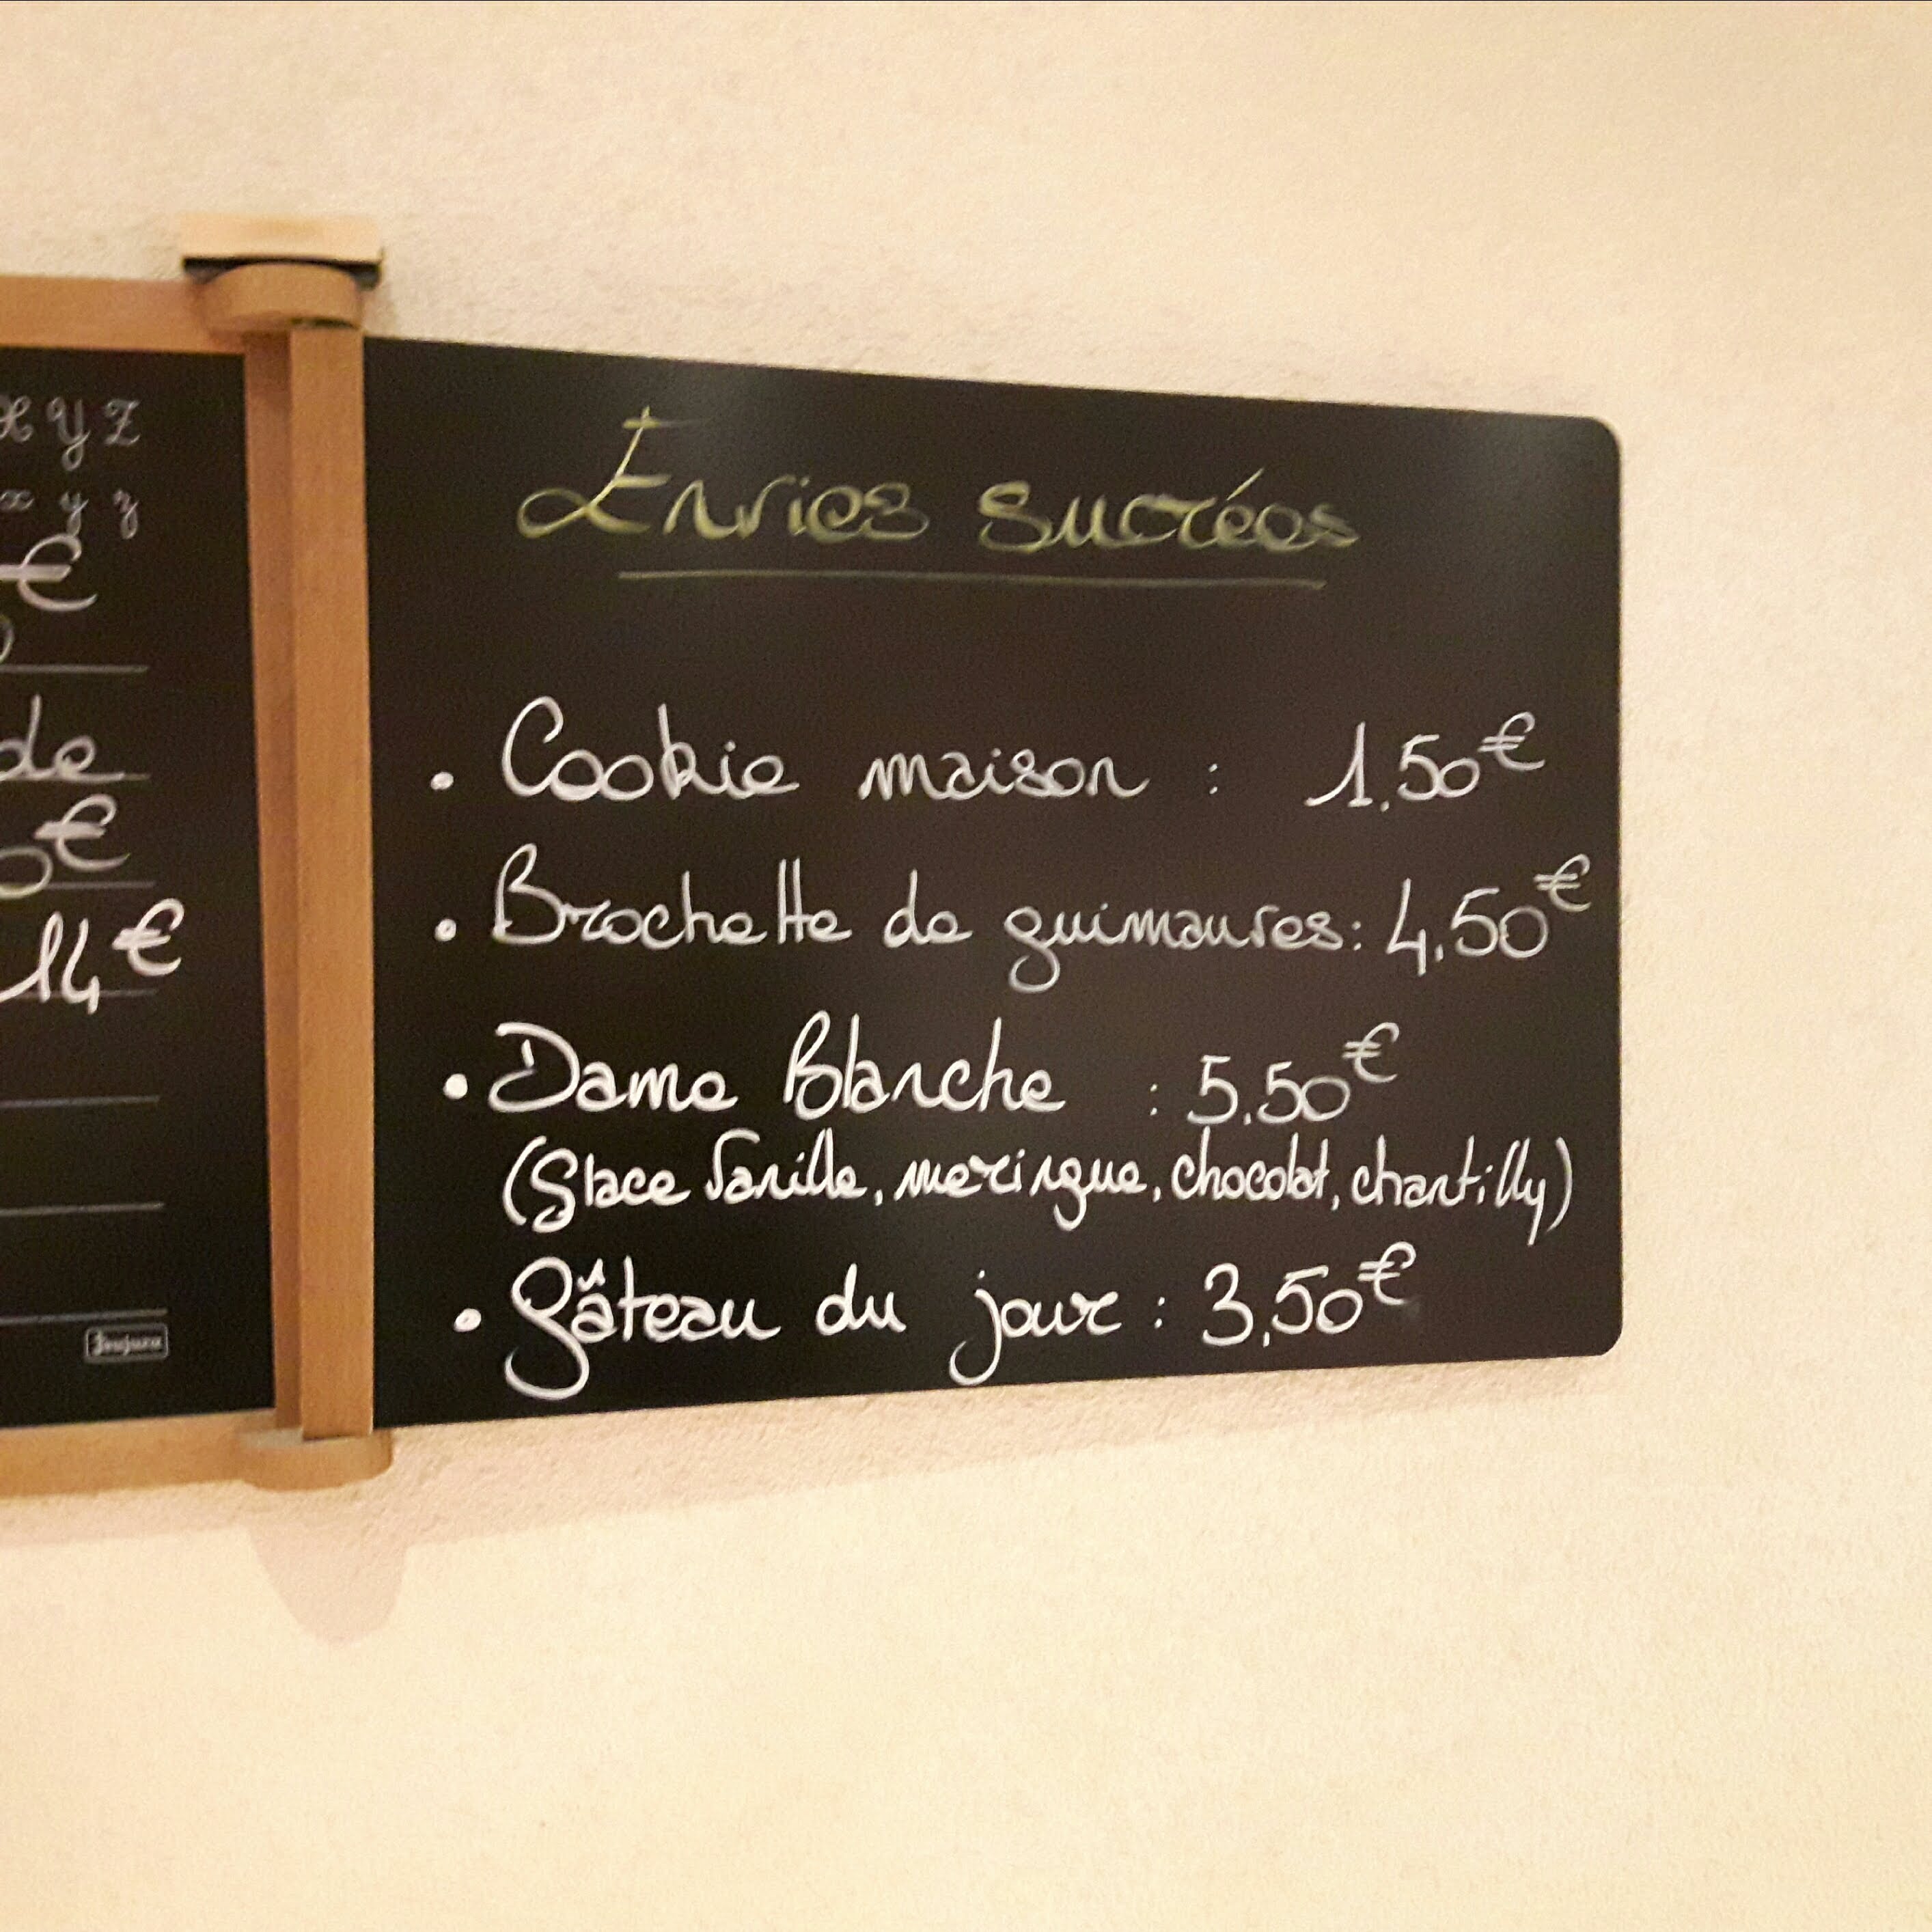 X Y Z
x y z
€
de
0€
14€
Toujours
Envies sucrées
• Cookie maison : 1.50€
• Brochette de guimauves : 4,50€
• Dame Blanche : 5,50€
(Glace Vanille, meringue, chocolat, chantilly)
• Gâteau du jour : 3,50€